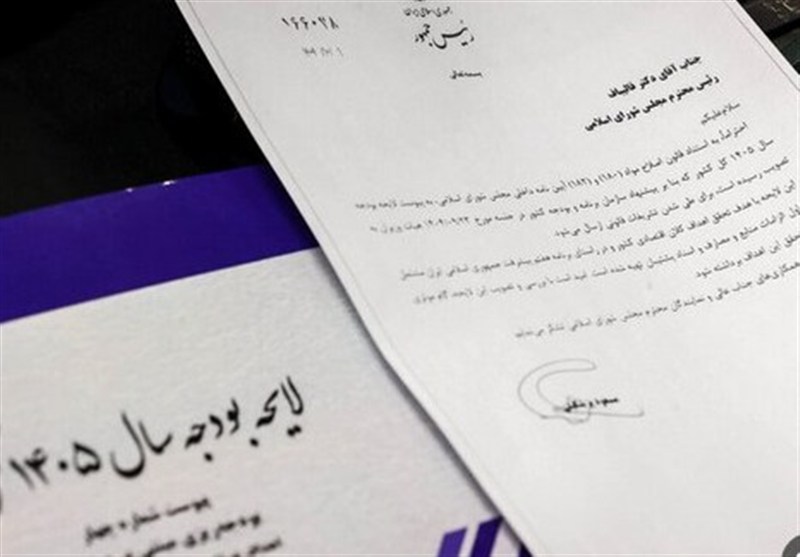 جمهوری اسلامی ایران
رئیس جمهور
۱۶۶۰۲۸
بسمه‌تعالی
جناب آقای دکتر قالیباف
رئیس محترم مجلس شورای اسلامی
سلام‌علیکم
احتراماً، به استناد قانون اصلاح مواد (۱۸۰) و (۱۸۲) آیین نامه داخلی مجلس شورای اسلامی، به پیوست لایحه بودجه
سال ۱۴۰۵ کل کشور که بنا بر پیشنهاد سازمان برنامه و بودجه کشور در جلسه مورخ ۱۴۰۴/۰۹/۲۳ هیات وزیران به
تصویب رسیده است برای طی شدن تشریفات قانونی ارسال می‌شود.
این لایحه با هدف تحقق اهداف کلان اقتصادی کشور و در راستای برنامه هفتم پیشرفت جمهوری اسلامی ایران مشتمل
الزامات منابع و مصارف و اسناد پشتیبان تهیه شده است. امید است با بررسی و تصویب این لایحه، گام موثری
تحقق این اهداف برداشته شود.
همکاری‌های جناب عالی و نمایندگان محترم مجلس شورای اسلامی
مسعود پزشکیان
لایحه بودجه سال ۱۴۰۵
پیوست شماره چهار